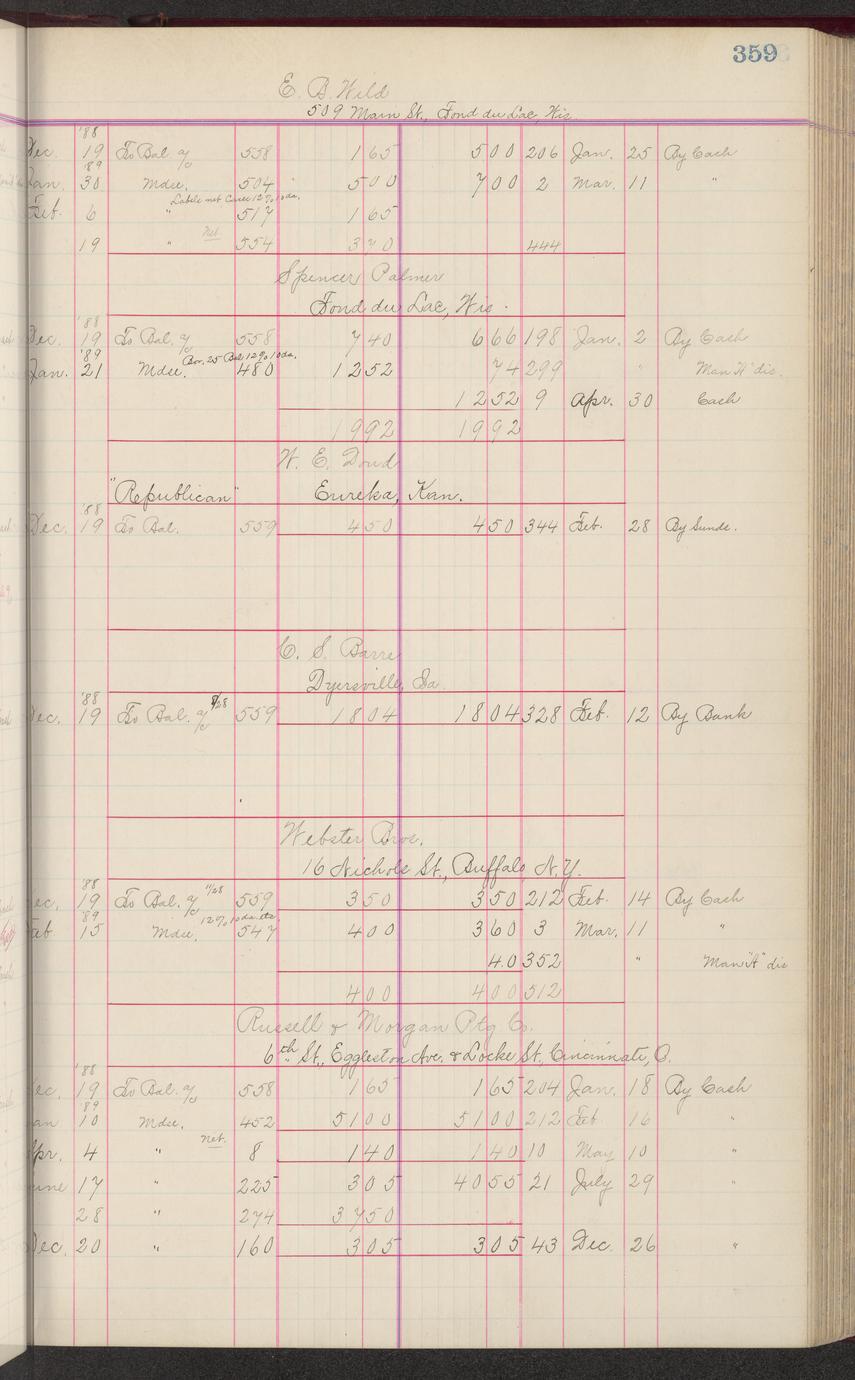 359
E. B. Wild
509 Main St., Fond du Lac, Wis.
'88
Dec. 19 To Bal. a/c 558 165 500 206 Jan. 25 By Cash
'89
Jan. 30 Mdse. 504 500 700 2 Mar. 11 "
Labels net Cases 12% 10 da.
Feb. 6 " 517 165
Net
19 " 554 370 444
Spencer Palmer
Fond du Lac, Wis.
'88
Dec. 19 To Bal. a/c 558 740 666 198 Jan. 2 By Cash
'89 Bor. 25 Bal 12% 10 da.
Jan. 21 Mdse. 480 1252 74 299 " Man "A" dis.
1252 9 Apr. 30 Cash
1992 1992
W. E. Doud
"Republican" Eureka, Kan.
'88
Dec. 19 To Bal. 559 450 450 344 Feb. 28 By Sunds.
C. S. Barre
Dyersville, Ia.
'88
Dec. 19 To Bal. a/c 8/28 559 1804 1804 328 Feb. 12 By Bank
Webster Bros.
16 Nichols St., Buffalo N.Y.
'88
Dec. 19 To Bal. a/c 11/28 559 350 350 212 Feb. 14 By Cash
'89 12% 10 da etc.
Feb. 15 Mdse. 547 400 360 3 Mar. 11 "
40 352 " Man "A" dis
400 400 512
Russell & Morgan Ptg Co.
6th St., Eggleston Ave. & Locke St., Cincinnati, O.
'88
Dec. 19 To Bal. a/c 558 165 165 204 Jan. 18 By Cash
'89
Jan 10 Mdse. 452 5100 5100 212 Feb 16 "
Net.
Apr. 4 " 8 140 140 10 May 10 "
June 17 " 225 305 4055 21 July 29 "
28 " 274 3750
Dec. 20 " 160 305 305 43 Dec. 26 "